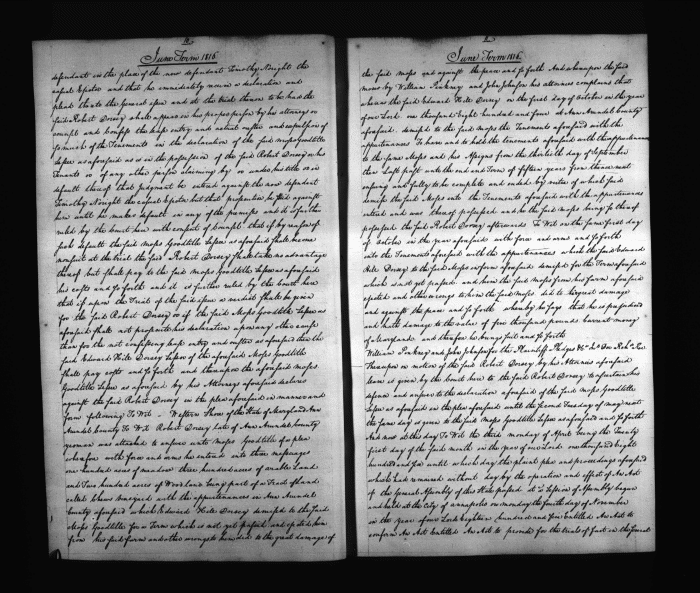 June Term 1816
defendant in the place of the now defendant Timothy Nought the
casual Ejector and that he immediately receive a declaration and
plead thereto the General issue and at the trial thereon to be had the
said Robert Dorsey shall appear in his proper person by his attorney or
council and confess the leap entry and actual ouster and expulsion of
so much of the Tenements in the declaration of the said moses Goodtitle
Lessee as aforesaid as is in the possession of the said Robert Dorsey or his
Tenants or of any other person claiming by or under his title or in
default thereof that judgment be entered against the now defendant
Timothy Nought the casual Ejector but that proceedings be staid against
him until he makes default in any of the premises and it is further
ruled by the court here with consent of council that if by reason of
such default the said moses Goodtitle Lessee as aforesaid shall become
nonsuit at the trial the said Robert Dorsey shall take no advantage
thereof but shall pay to the said moses Goodtitle Lessee as aforesaid
his costs and so forth and it is further ruled by the court here
that if upon the Trial of the said issue a verdict shall be given
for the said Robert Dorsey or if the said Moses Goodtitle Lessee as
aforesaid shall not prosecute his declaration upon any other cause
than for the not confessing leap entry and ouster as aforesaid then the
said Edward Hill Dorsey Lessor of the aforesaid Moses Goodtitle
shall pay costs and so forth and thereupon the aforesaid moses
Goodtitle Lessee as aforesaid by his Attorneys aforesaid declares
against the said Robert Dorsey in the plea aforesaid in manner and
form following To Wit Western Shore of the State of Maryland Ann
Arundel county To Wit Robert Dorsey late of Ann Arundel county
yeoman was attached to answer unto moses Goodtitle of a plea
wherefore with force and arms he entered into three messuages
one hundred acres of meadow three hundred acres of arable Land
and Two hundred acres of Woodland being part of a Tract of Land
called with the appurtenances in Ann Arundel
county aforesaid which Edward Hill Dorsey demised to the said
Moses Goodtitle for a Term which is not yet passed and ejected him
from his said farm and other wrongs to him did to the great damage of
June Term 1816
the said Moses and against the peace and so forth And whereupon the said
moses by William Pinkney and John Johnson his attornies complains that
whereas the said Edward Hill Dorsey on the first day of October in the year
of our Lord one thousand eight hundred and four at Ann Arundel county
aforesaid demised to the said Moses the Tenements aforesaid with the
appurtenances To have and to hold the tenements aforesaid with the appurtenances
to the same Moses and his Assigns from the thirtieth day of September
then last past unto the end and Term of fifteen years from thence next
ensuing and fully to be complete and ended by virtue of which said
demise the said Moses into the Tenements aforesaid with the appurtenances
entered and was thereof possessed and he the said Moses being so thereof
possessed the said Robert Dorsey afterwards To Wit on the same first day
of October in the year aforesaid with force and arms and so forth
into the Tenements aforesaid with the appurtenances which the said Edward
Hill Dorsey to the said Moses in form aforesaid demised for the Term aforesaid
which is not yet passed and him the said Moses from his farm aforesaid
ejected and other wrongs to him the said Moses did to his great damage
and against the peace and so forth whereby he says that he is prejudiced
and hath damage to the value of five thousand pounds current money
of Maryland and therefore he brings suit and so forth
William Pinkney and John Johnson for the Plaintiff Pledges &c
Thereupon on motion of the said Robert Dorsey by his Attornies aforesaid
leave is given by the court here to the said Robert Dorsey to
defence and answer to the declaration aforesaid of the said moses Goodtitle
Lessee as aforesaid in the plea aforesaid until the second Tuesday of may next
the same day is given to the said Moses Goodtitle Lessee as aforesaid and so forth
And now at this day To Wit the third monday of April being the Twenty
first day of the said month in the year of our Lord one thousand eight
hundred and six until which day the plaint plea and proceedings aforesaid
which had remained without day by the operation and effect of An Act
of the General Assembly of this State passed at a Session of Assembly begun
and held at the city of annapolis on monday the fourth day of November
in the year of our Lord eighteen hundred and five Entitled An Act to
confirm An Act Entitled An Act to provide for the trials of facts in the several